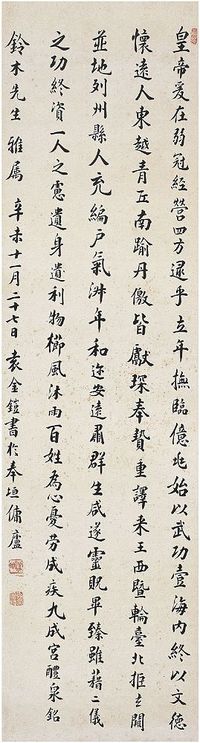 皇帝爰在弱冠經營四方逮乎立年撫臨億兆始以武功壹海內終以文德
懷遠人東越青丘南踰丹徼皆獻琛奉贄重譯來王西暨輪臺北拒玄闕
並地列州縣人充編戶氣淑年和迩安遠肅群生咸遂靈貺畢臻雖藉二儀
之功終資一人之慮遺身遺利物櫛風沐雨百姓為心憂勞成疾九成宮醴泉銘
鈴木先生雅屬 辛未十一月二十七日 袁金鎧書於奉垣傭廬